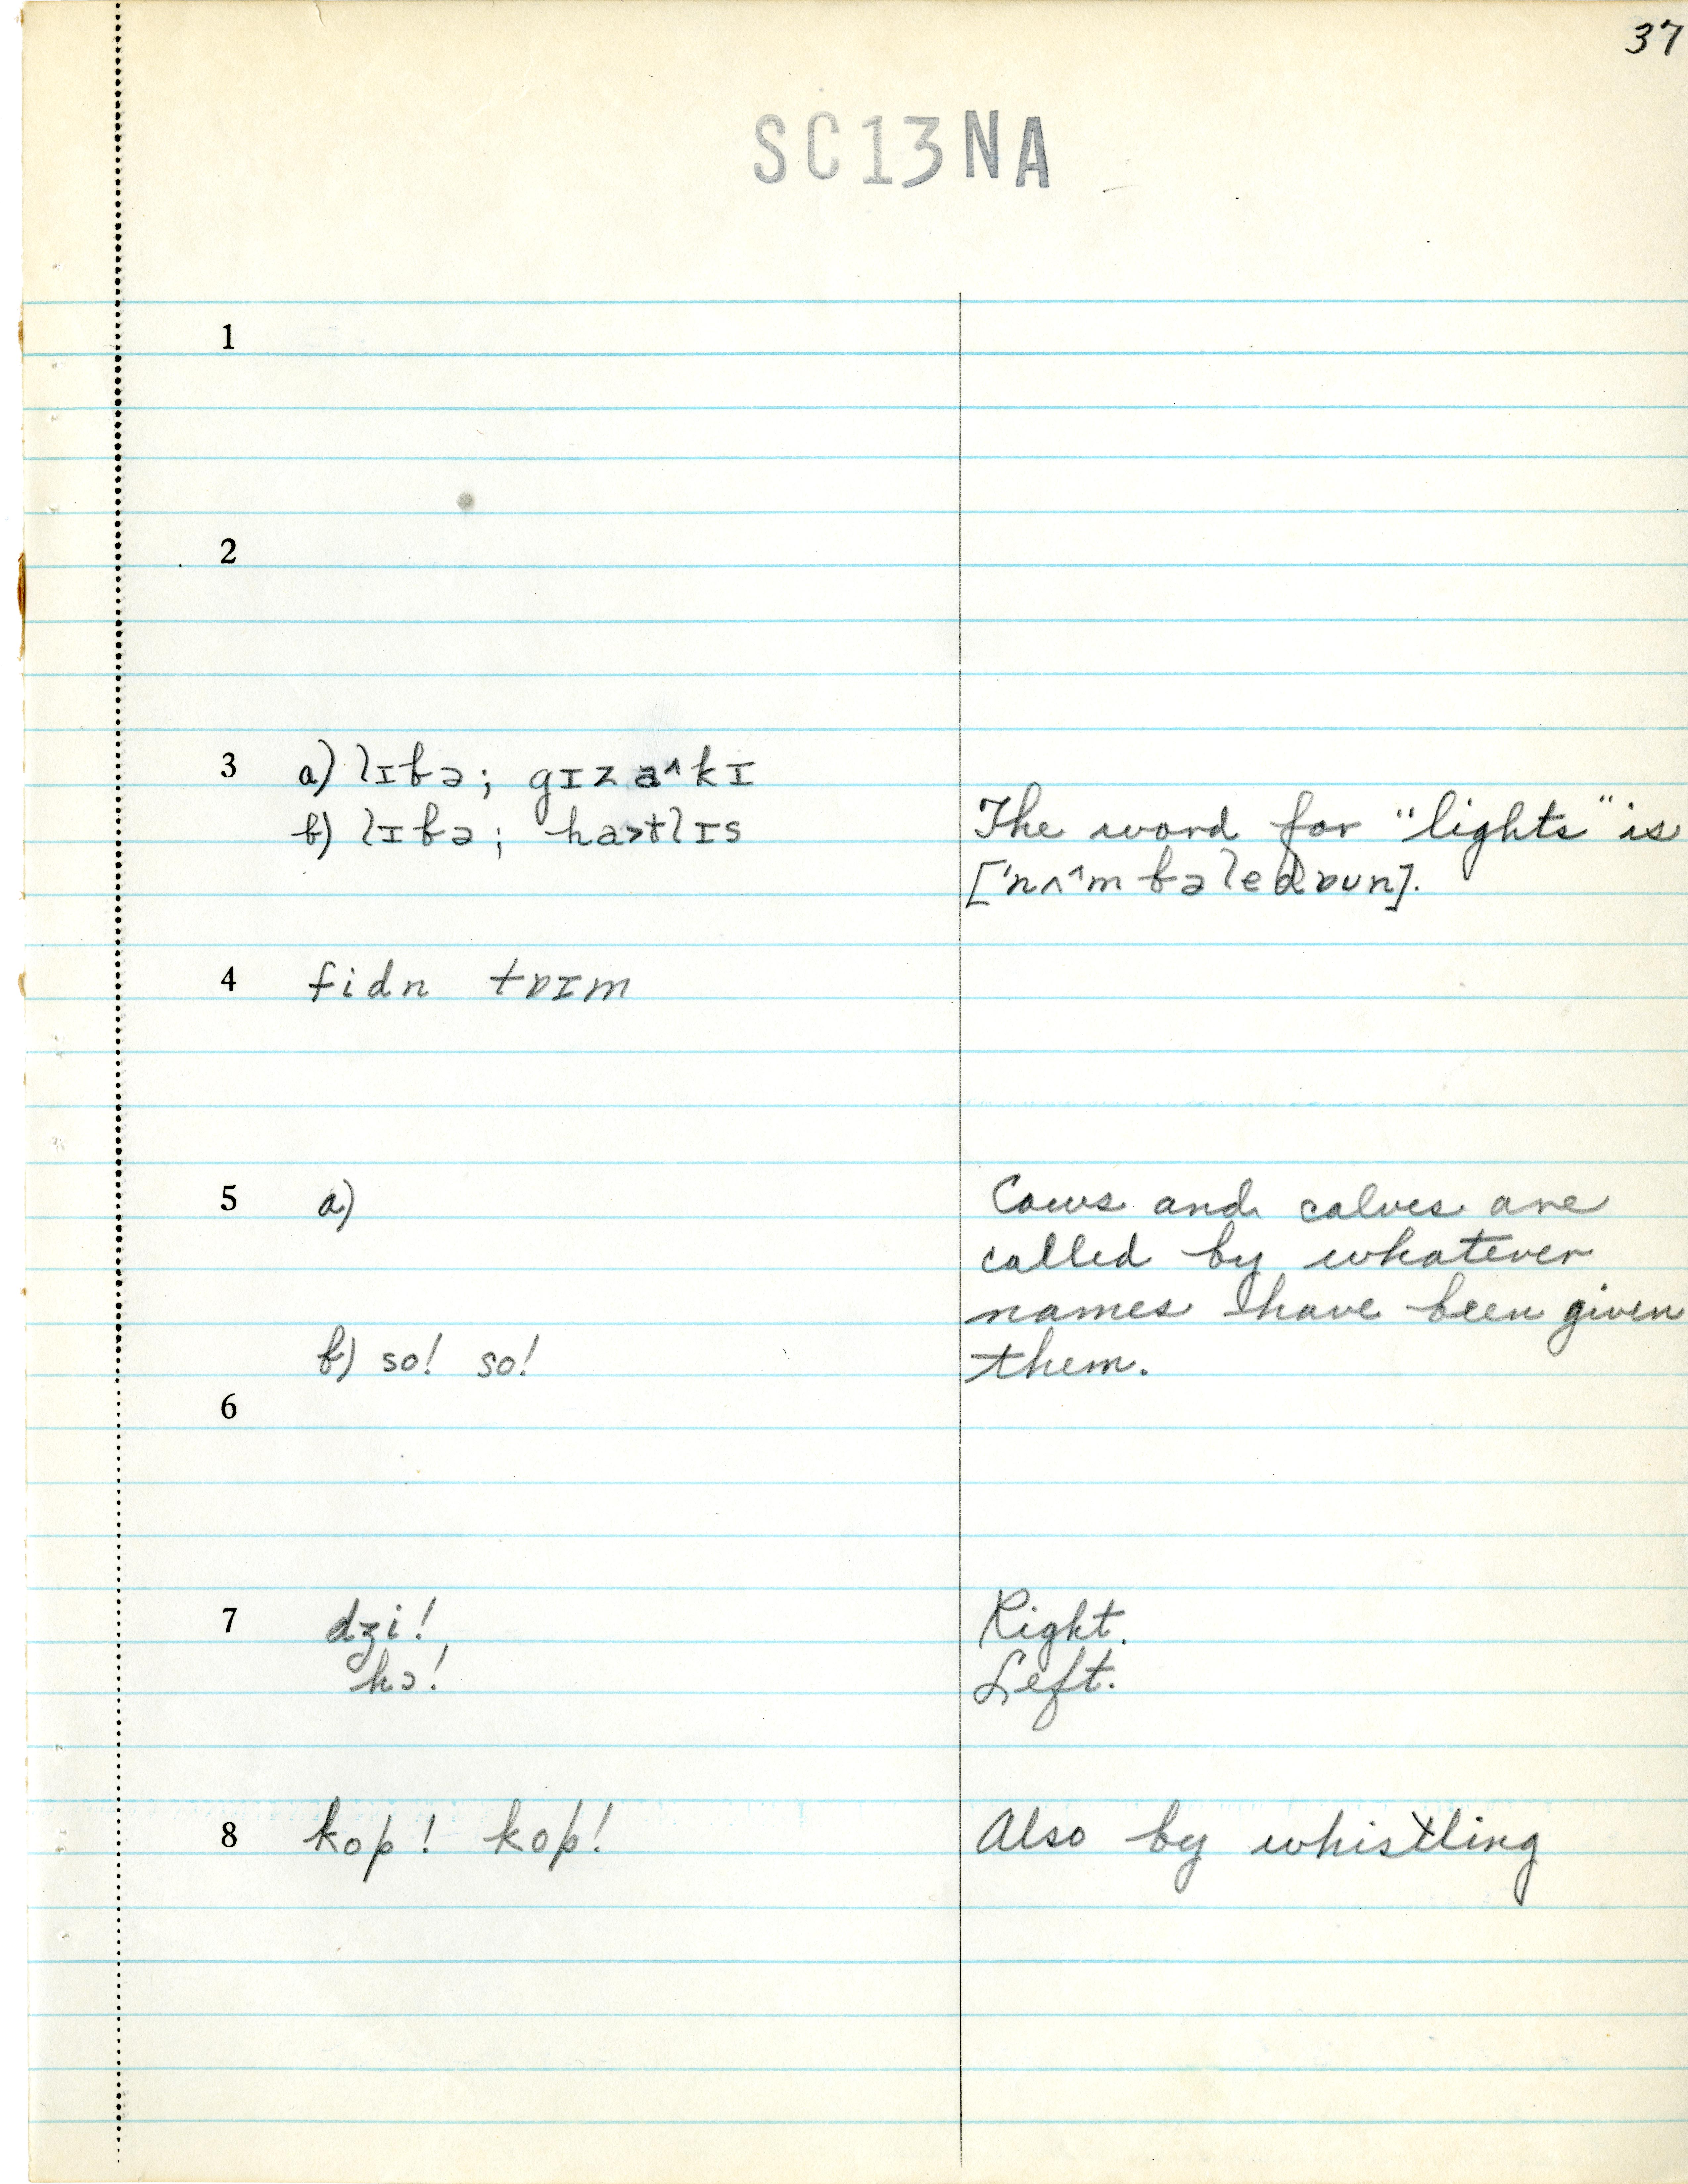 37
SC13NA
1
2
3 a) lɪbə; gɪzaˆkɪ
b) lɪbə; ha>tlɪs
The word for "lights" is
['nʌˆmbəledɒun].
4 fidn tɒɪm
5 a)
Cows and calves are
called by whatever
names have been given
b) so! so!
them.
6
7 dʒi! Right.
hɔ! Left.
8 kop! kop! Also by whistling